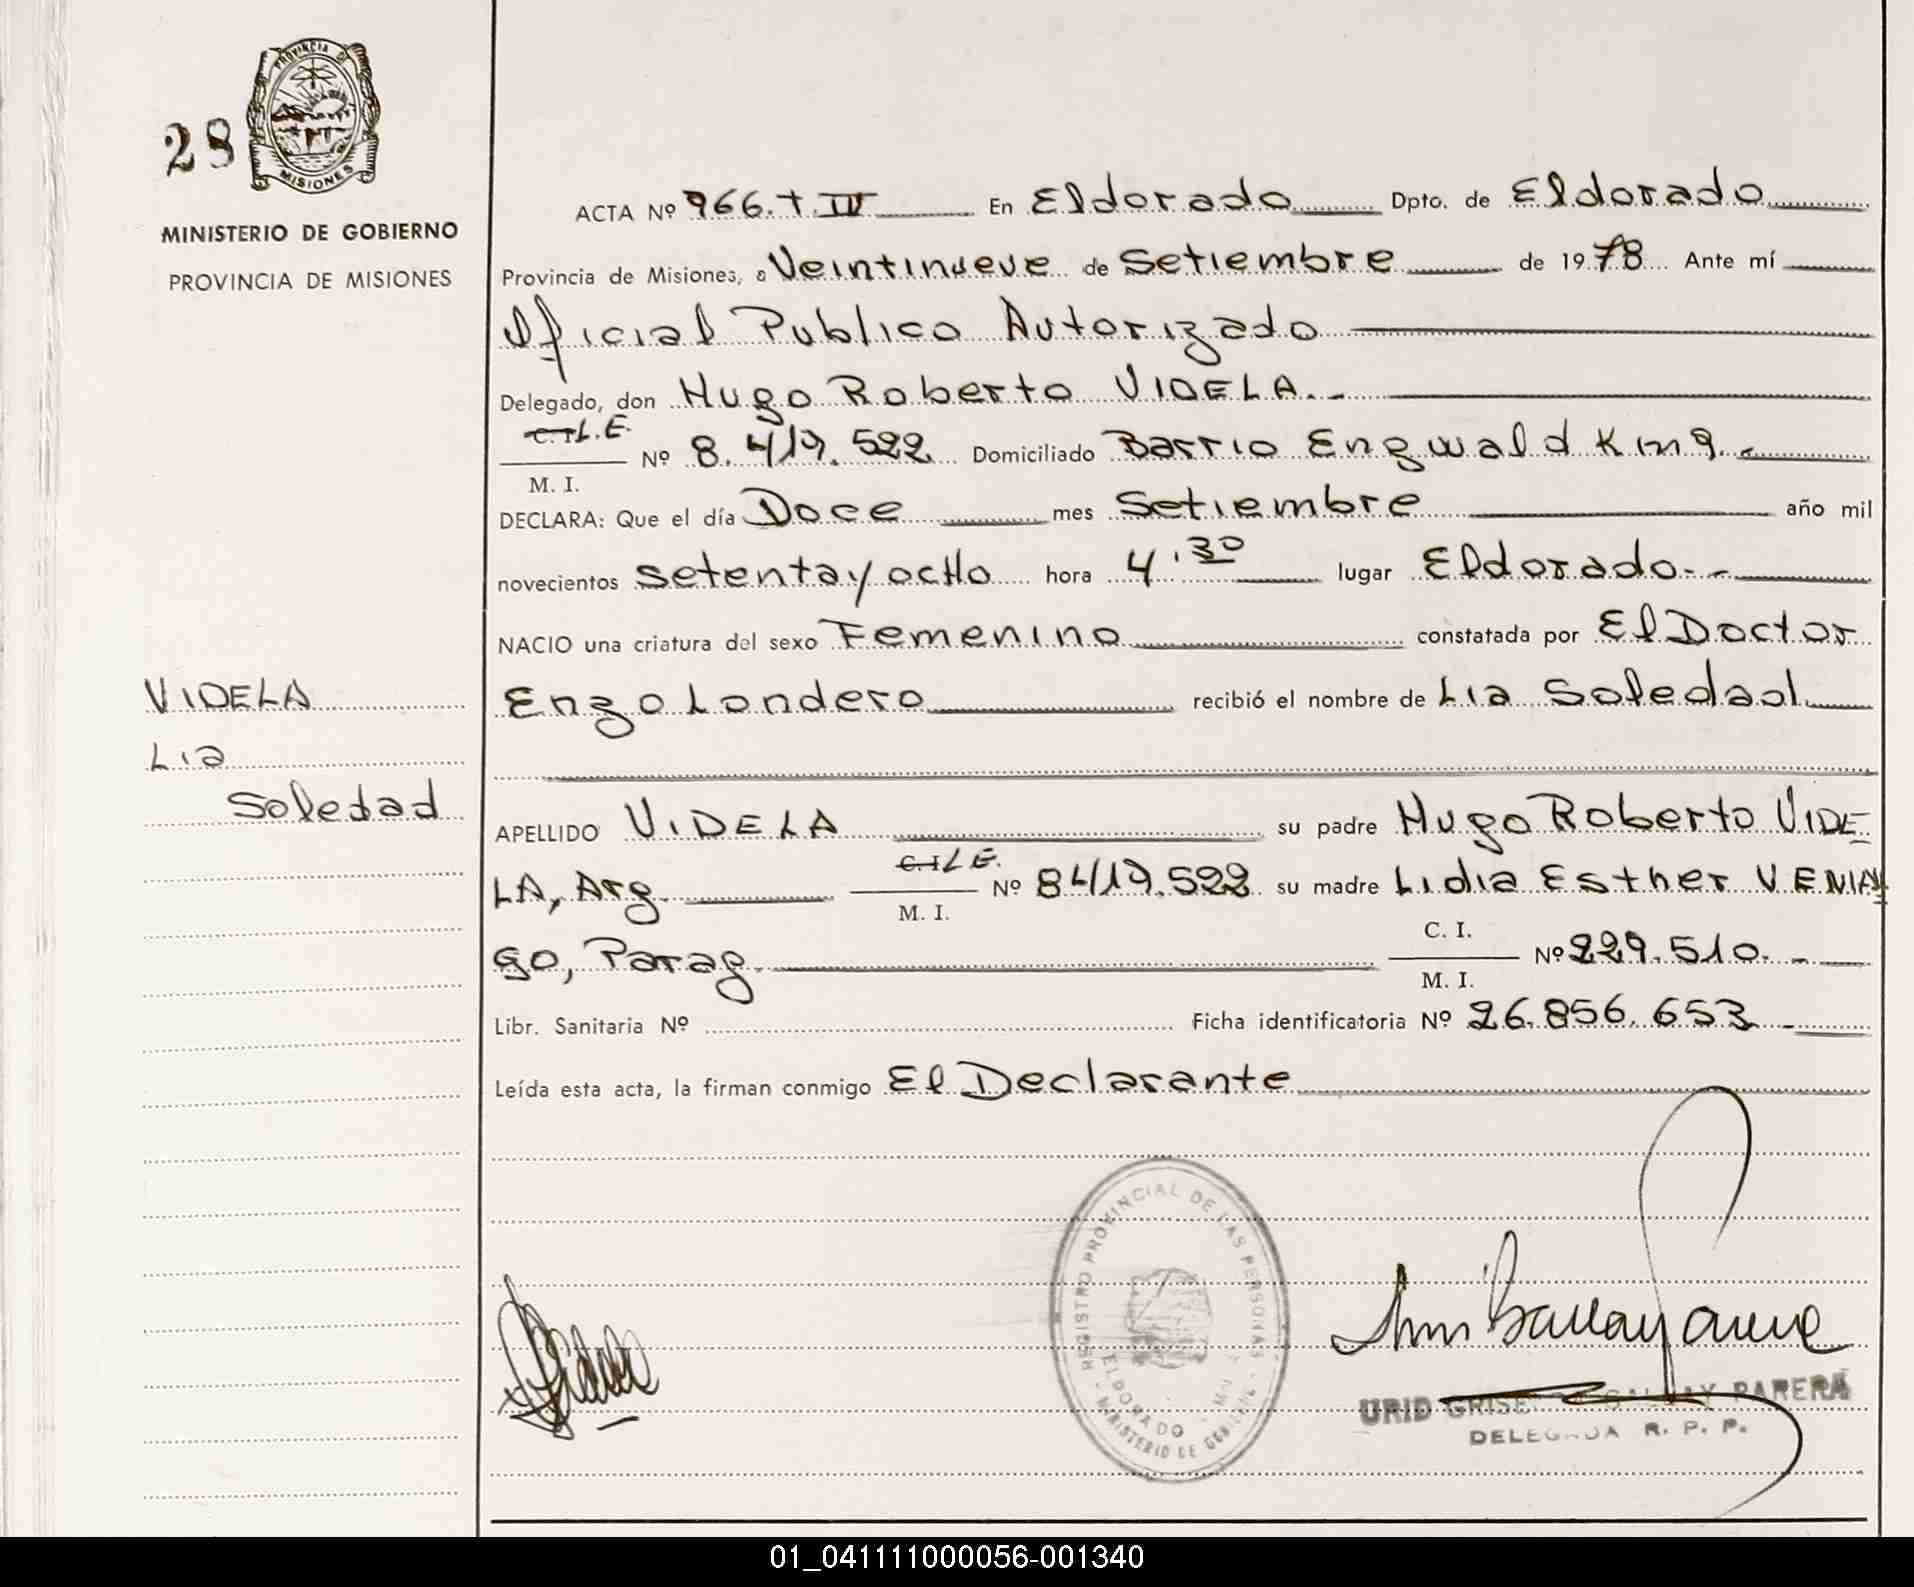 PROVINCIA DE
MISIONES
28
MINISTERIO DE GOBIERNO
PROVINCIA DE MISIONES
ACTA Nº 966. T. IV En Eldorado Dpto. de Eldorado
Provincia de Misiones, a Veintinueve de Setiembre de 1978 Ante mí
Oficial Publico Autorizado
Delegado, don Hugo Roberto VIDELA.
C. I. L.E.
M. I. Nº 8.419.522 Domiciliado Barrio Engwald King.
DECLARA: Que el día Doce mes Setiembre año mil
novecientos setenta y ocho hora 4.30 lugar Eldorado.
NACIO una criatura del sexo Femenino constatada por El Doctor
Enzo Londero recibió el nombre de Lia Soledad
VIDELA
Lia
Soledad
APELLIDO VIDELA su padre Hugo Roberto VIDE
LA, Arg. C. I. L.E. M. I. Nº 8419.522 su madre Lidia Esther VENIA
GO, Parag. C. I. M. I. Nº 229.510.
Libr. Sanitaria Nº Ficha identificatoria Nº 26.856.653
Leída esta acta, la firman conmigo El Declarante
REGISTRO PROVINCIAL DE LAS PERSONAS
ELDORADO
MINISTERIO DE GOBIERNO
URID PARERA
DELEGADA R. P. P.
01_041111000056-001340